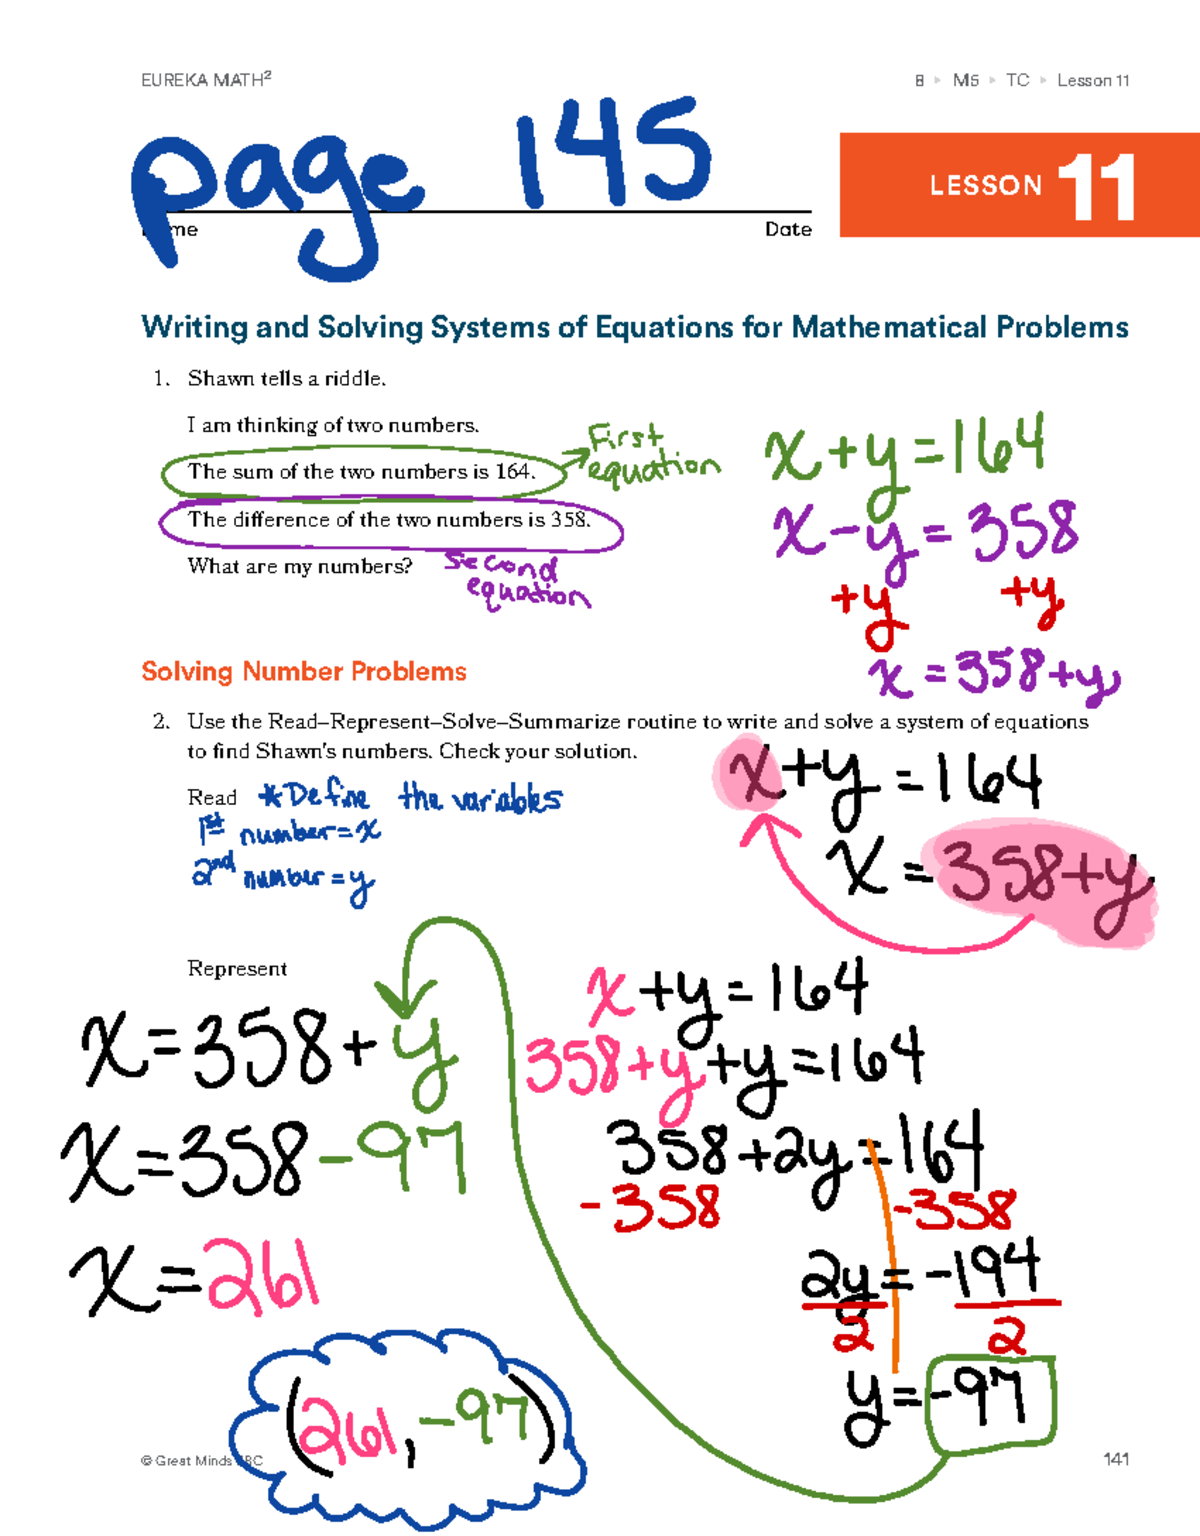 EUREKA MATH²
8 ▸ M5 ▸ TC ▸ Lesson 11
page 145
LESSON 11
Date
Writing and Solving Systems of Equations for Mathematical Problems
1. Shawn tells a riddle.
I am thinking of two numbers.
The sum of the two numbers is 164.
First equation
The difference of the two numbers is 358.
What are my numbers?
second equation
x+y=164
x-y=358
+y +y
x=358+y
Solving Number Problems
2. Use the Read–Represent–Solve–Summarize routine to write and solve a system of equations
to find Shawn's numbers. Check your solution.
Read *Define the variables
1st number=x
2nd number=y
x+y=164
x=358+y
Represent
x=358+y
x=358-97
x=261
(261,-97)
x+y=164
358+y+y=164
358+2y=164
-358 -358
2y=-194
2 2
y=-97
© Great Minds
141